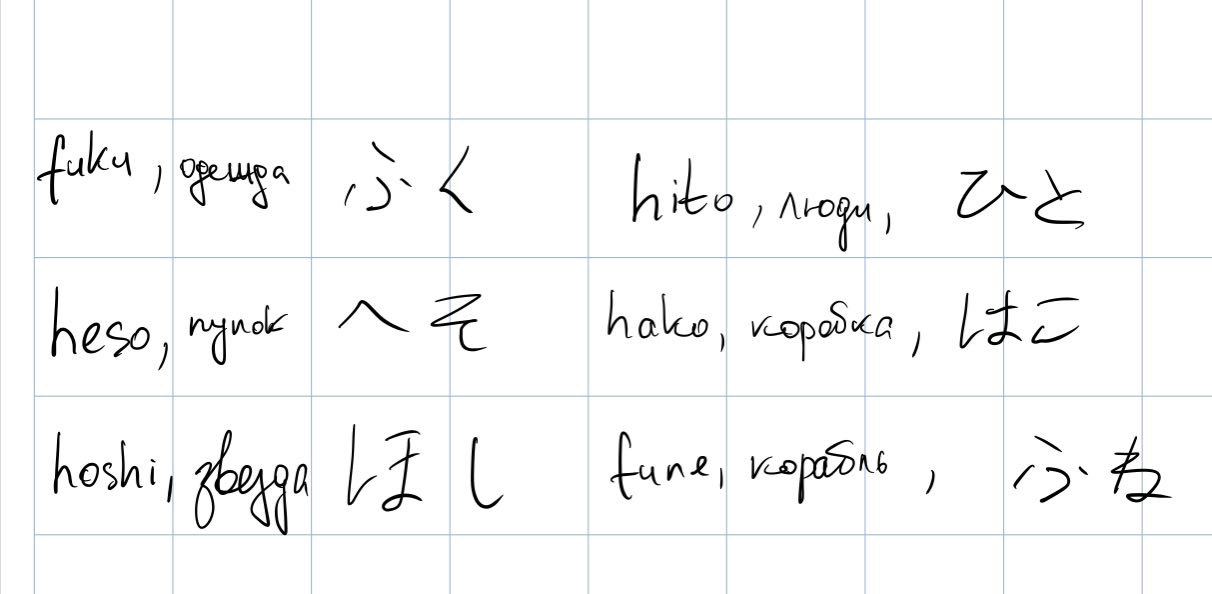 fuku, одежда ふく hito, люди, ひと
heso, пупок へそ hako, коробка, はこ
hoshi, звезда ほし fune, корабль, ふね